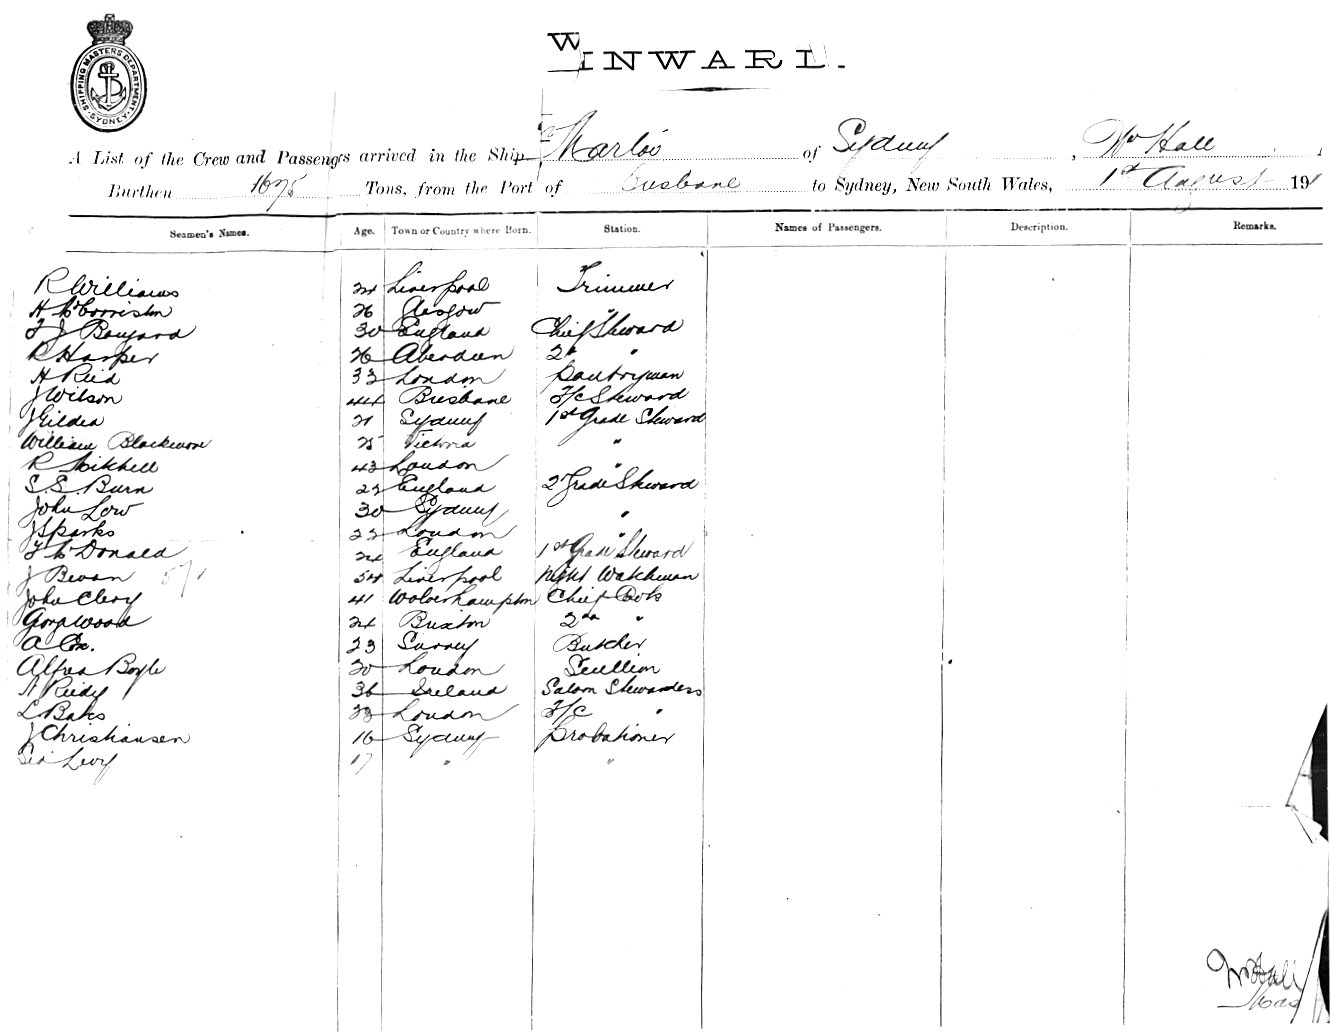 SHIPPING MASTERS DEPARTMENT
SYDNEY
INWARD.
A List of the Crew and Passengers arrived in the Ship of Sydney, Wm Hall
Burthen 1675 Tons, from the Port of Brisbane to Sydney, New South Wales, 1st August 191
Seamen's Names. Age. Town or Country where Born. Station. Names of Passengers. Description. Remarks.
R Williams 24 Liverpool Trimmer
H McCorriston 26 Glasgow "
F J Bouyard 30 England Chief Steward
R Harper 26 Aberdeen 2nd "
H Reid 33 London Pantryman
J Wilson 44 Brisbane F/c Steward
J Gildea 21 Sydney 1st Grade Steward
William Blackmore 25 Victoria "
R Mitchell 43 London "
S. S. Burn 22 England 2nd Grade Steward
John Low 30 Sydney "
J Sparks 22 London "
F McDonald 24 England 1st Grade Steward
J Bevan 54 Liverpool Night Watchman
John Clery 41 Wolverhampton Chief Cook
Wood 24 Buxton 2nd "
A Cox. 23 Surrey Butcher
Alfred Boyle 20 London Scullion
A Reidy 36 Ireland Saloon Stewardess
L Baks 33 London F/c "
J Christiansen 16 Sydney Probationer
Levy 17 " "
Wm Hall